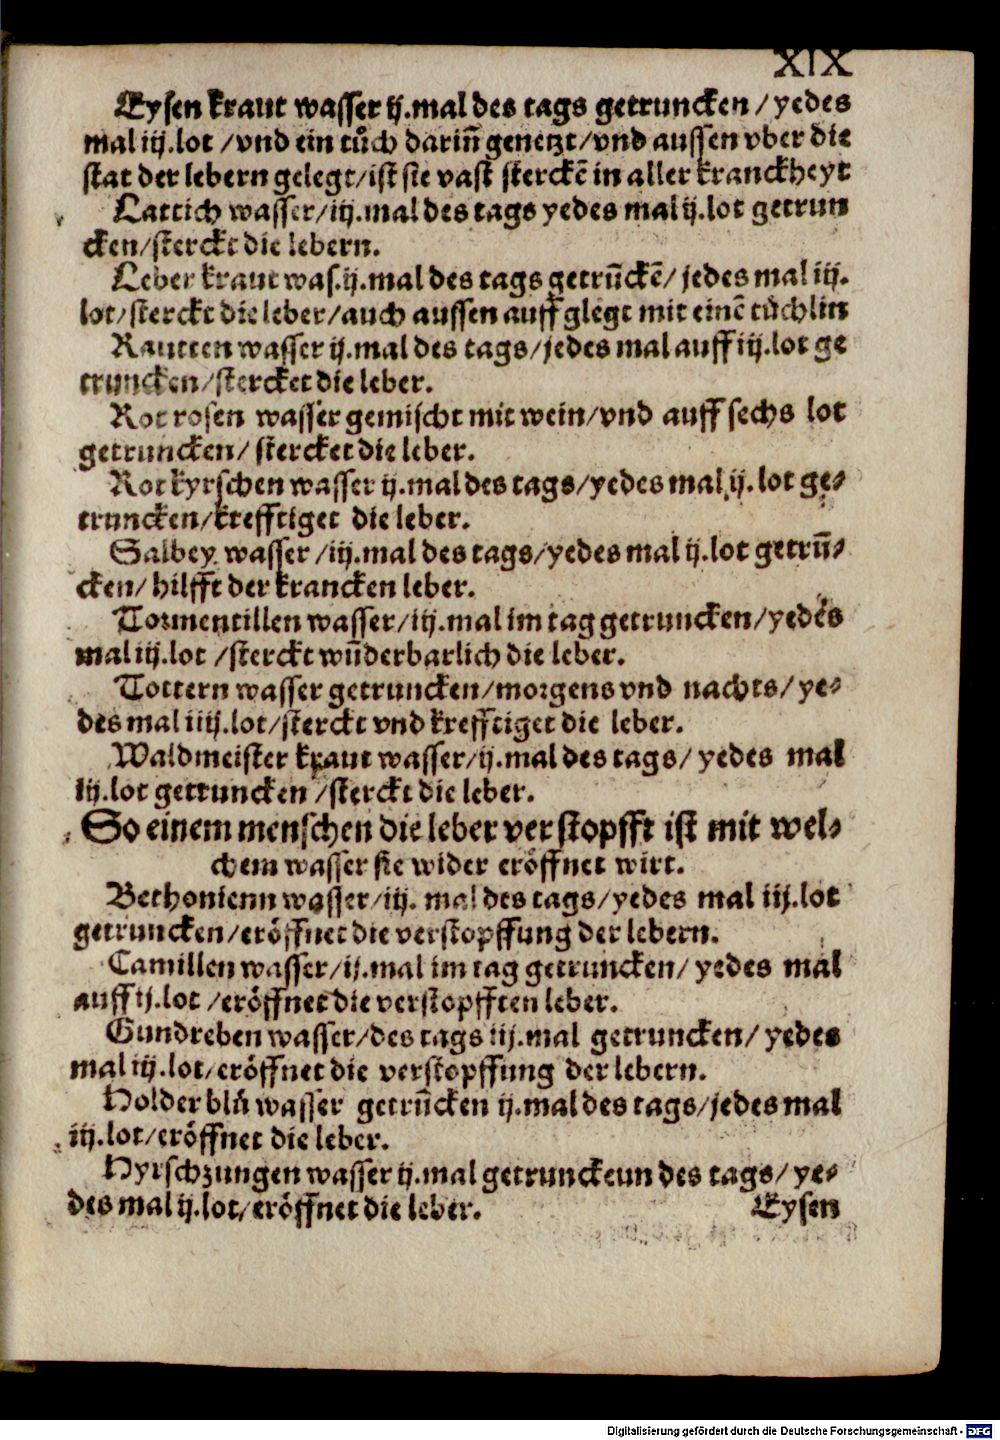 XIX
Eysen kraut wasser ij.mal des tags getruncken /yedes
mal iij.lot /vnd ein tůch darin̄ genetzt/vnd aussen vber die
stat der lebern gelegt/ist sie vast sterckē in aller kranckheyt
Lattich wasser/iij.mal des tags yedes mal ij.lot getrun
cken/sterckt die lebern.
Leber kraut was.ij.mal des tags getrūckē/ jedes mal iij.
lot/sterckt die leber/auch aussen auff glegt mit einē tüchlin
Rautten wasser ij.mal des tags/jedes mal auff iij.lot ge
truncken/stercket die leber.
Rot rosen wasser gemischt mit wein/vnd auff sechs lot
getruncken/ stercket die leber.
Rot kyrschen wasser ij.mal des tags/yedes mal ij.lot ge⸗
truncken/krefftiget die leber.
Salbey wasser /iij.mal des tags/yedes mal ij.lot getrū⸗
cken/ hilfft der krancken leber.
Tormentillen wasser/iij.mal im tag getruncken/yedes
mal iij.lot /sterckt wūderbarlich die leber.
Tottern wasser getruncken/morgens vnd nachts/ ye⸗
des mal iiij.lot/sterckt vnd krefftiget die leber.
Waldmeister kraut wasser/ij.mal des tags/ yedes mal
iij.lot getruncken /sterckt die leber.
So einem menschen die leber verstopfft ist mit wel⸗
chem wasser sie wider eröffnet wirt.
Bethonienn wasser/iij. mal des tags/yedes mal iij.lot
getruncken/eröffnet die verstopffung der lebern.
Camillen wasser/ij.mal im tag getruncken/ yedes mal
auff ij.lot /eröffnet die verstopfften leber.
Gundreben wasser/des tags iij.mal getruncken/ yedes
mal iij.lot/eröffnet die verstopffung der lebern.
Holder blů wasser getrūcken ij.mal des tags/jedes mal
iij.lot/eröffnet die leber.
Hyrschzungen wasser ij.mal getrunckeun des tags/ ye⸗
des mal ij.lot/eröffnet die leber.
Eysen
Digitalisierung gefördert durch die Deutsche Forschungsgemeinschaft - DFG